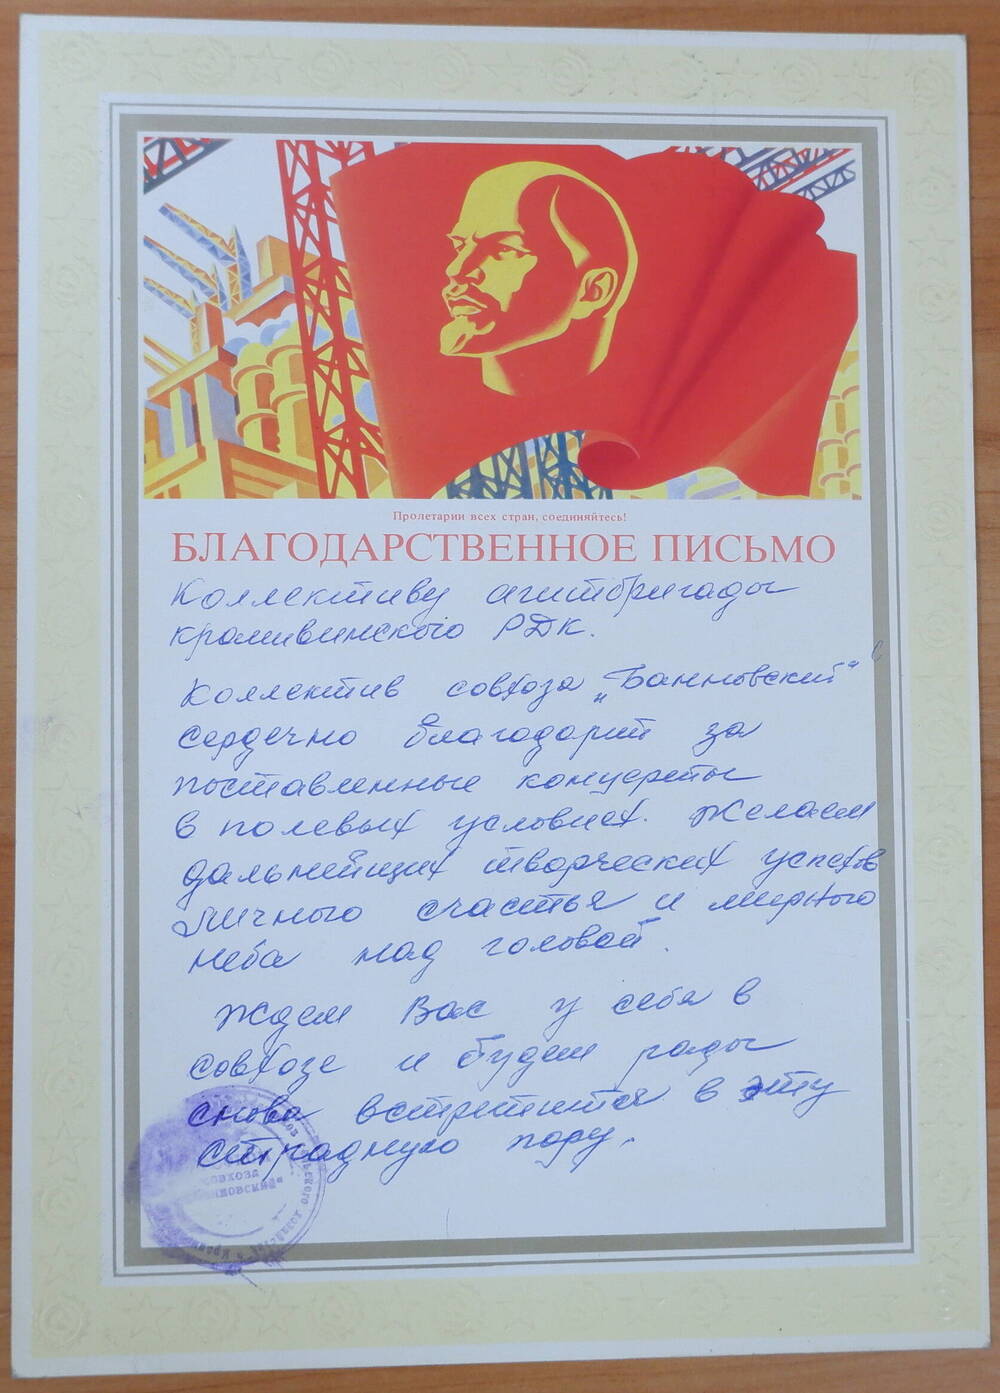 Пролетарии всех стран, соединяйтесь!
БЛАГОДАРСТВЕННОЕ ПИСЬМО
Коллективу агитбригады
Крапивинского РДК.
Коллектив совхоза „Банновский“
сердечно благодарит за
поставленные концерты
в полевых условиях. Желаем
дальнейших творческих успехов
личного счастья и мирного
неба над головой.
Ждем Вас у себя в
совхозе и будем рады
снова встретится в эту
страдную пору.
совхоза